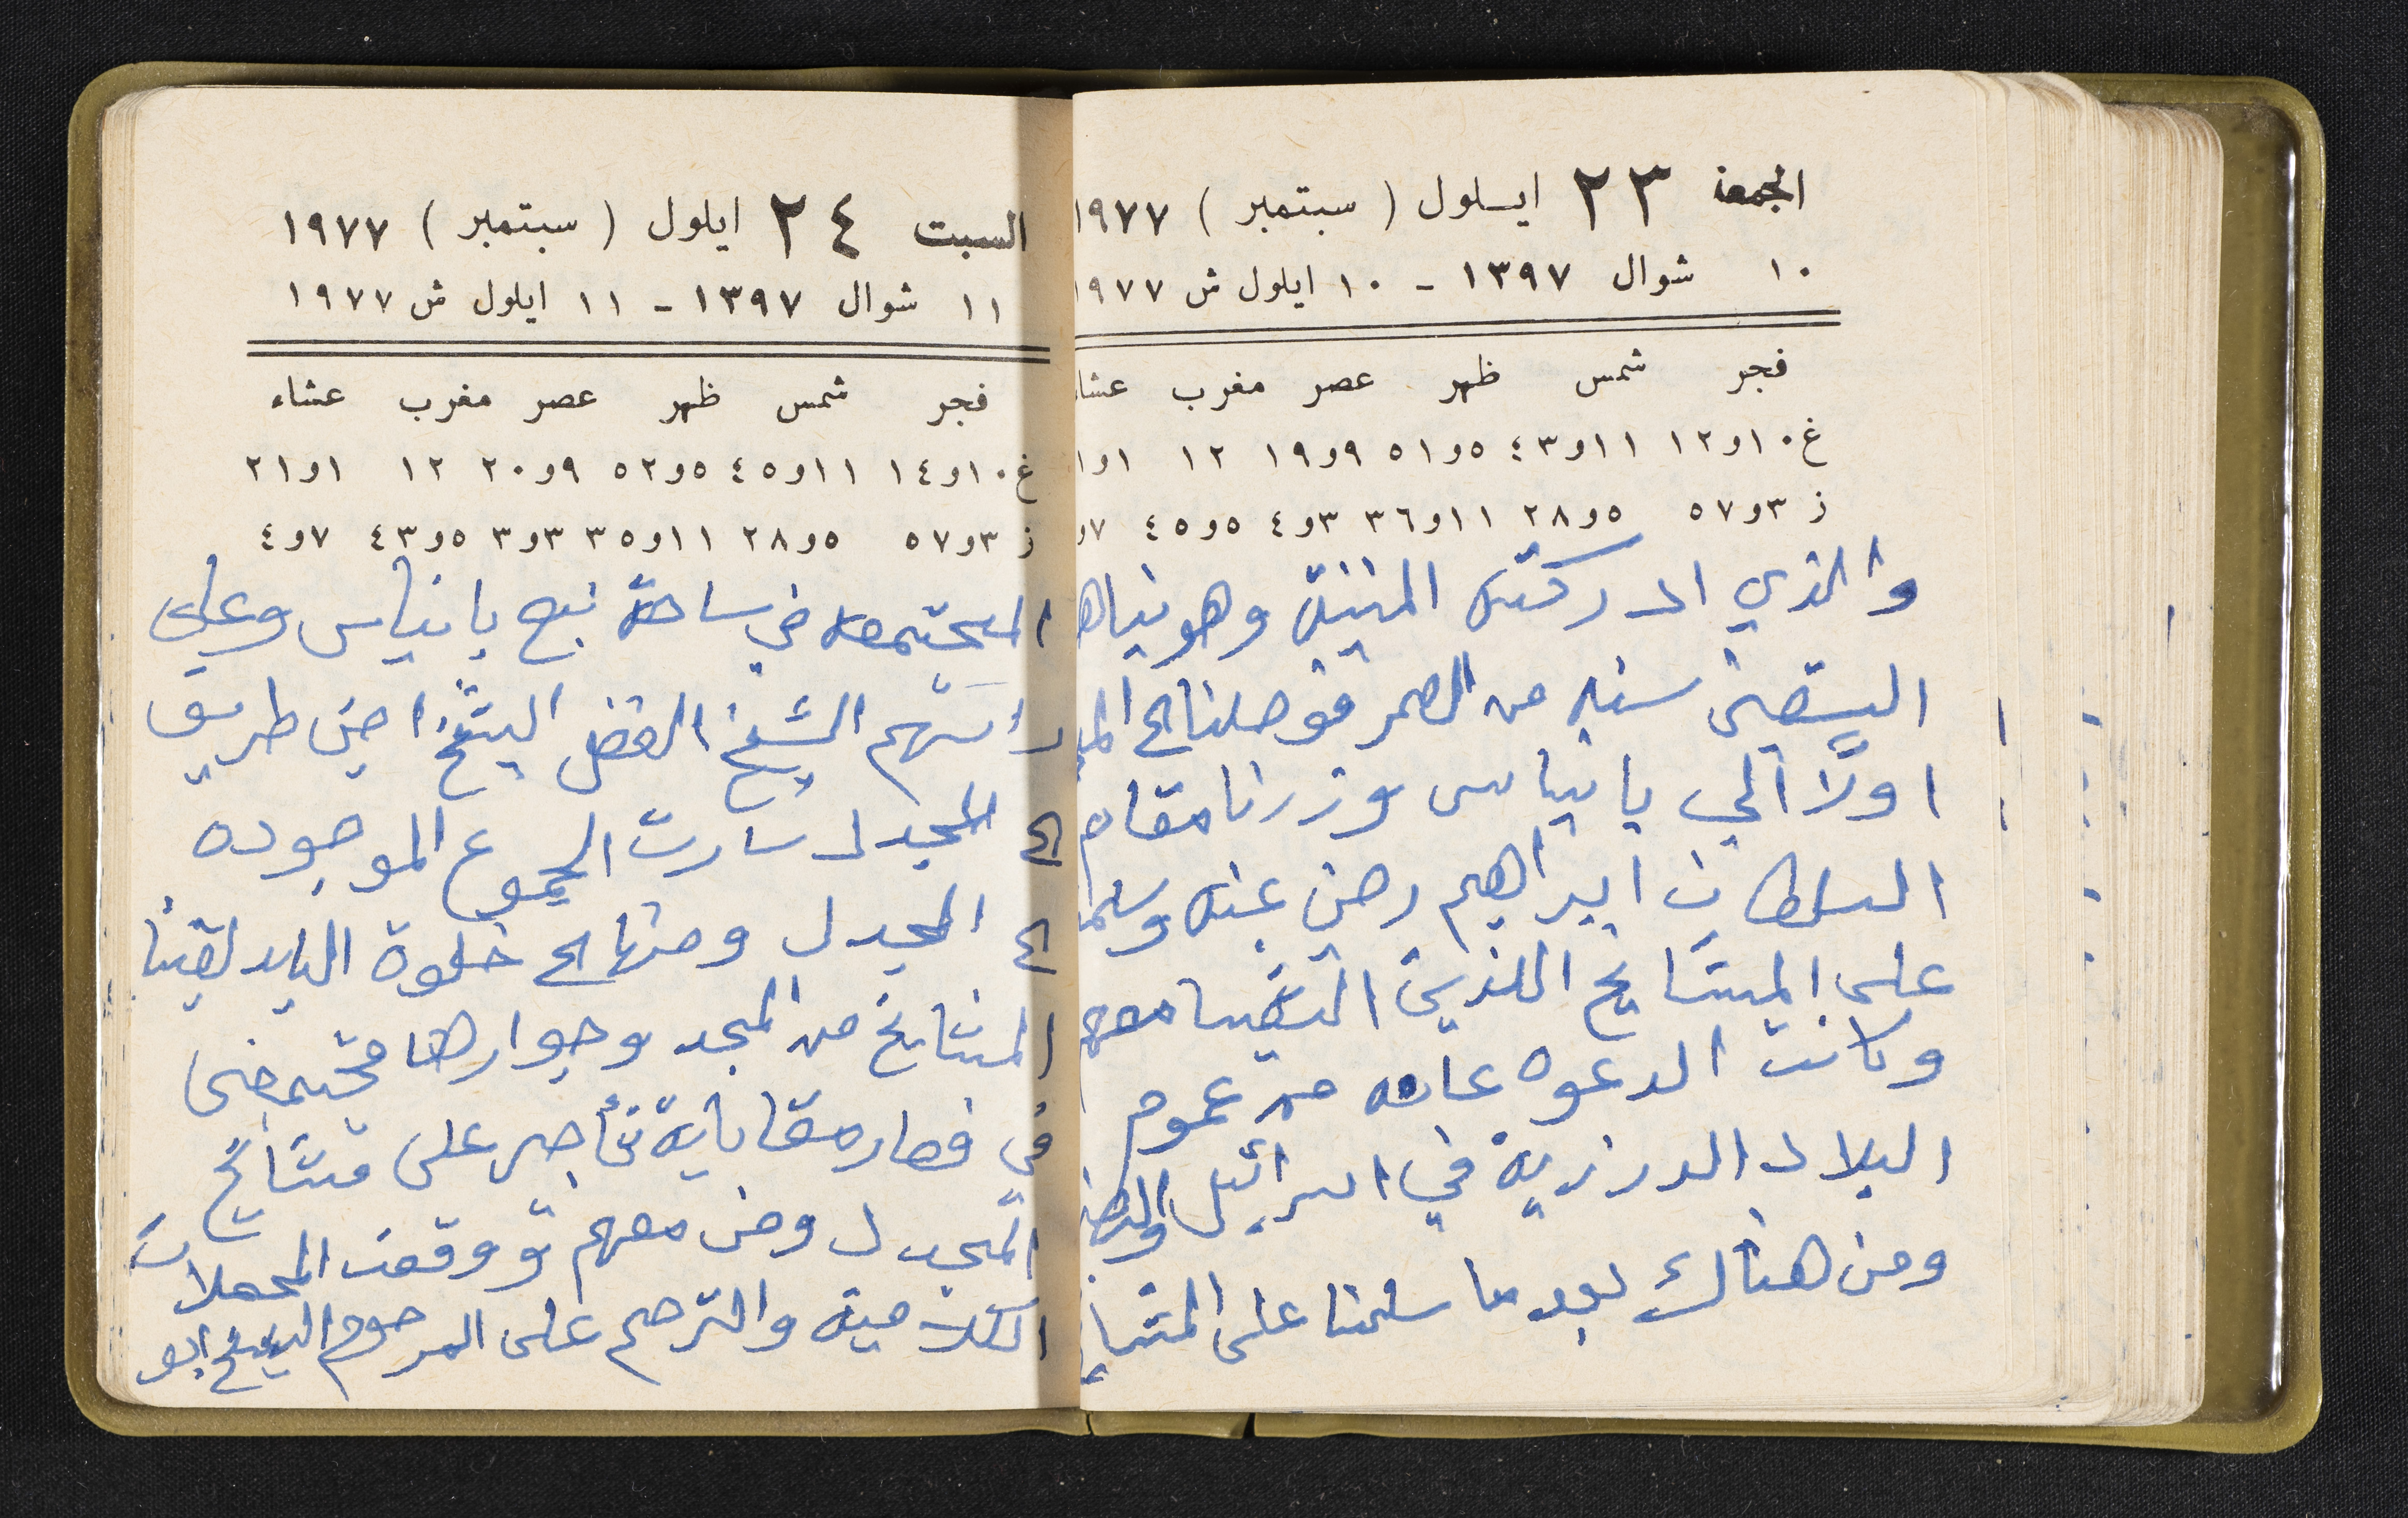 الجمعة ٢٣ ايسلول ( سبتمبر ) ١٩٧٧
١٠ شوال ١٣٩٧ - ١٠ ايلول ش ١٩٧٧
فجر شمس ظهر عصر مغرب عشاء
غ ١٠و١٢ ١١و٤٣ ٥و٥١ ٩و١٩ ١٢ ١و
ز ٣و٥٧ ٥و٢٨ ١١و٣٦ ٣و٤ ٥و٤٥ ٧و
والذي ادركته المنية وهو
سنه من العمر فوصلنا الى
اولاً الى بانياس وزرنا مقام
السلطان ابراهيم رضي عنه
على المشايخ اللذين التقينا معهم
وكانت الدعوه عامه من عموم
البلاد الدرزية في اسرائيل
ومن هناك بعد ما سلمنا على
السبت ٢٤ ايلول ( سبتمبر ) ١٩٧٧
١١ شوال ١٣٩٧ - ١١ ايلول ش ١٩٧٧
فجر شمس ظهر عصر مغرب عشاء
غ ١٠و١٤ ١١و٤٥ ٥و٥٢ ٩و٢٠ ١٢ ١و٢١
ز ٣و٥٧ ٥و٢٨ ١١و٣٥ ٣و٣ ٥و٤٣ ٧و٤
المجتمعه في ساحة نبع بانياس وعلى
رأسهم الشيخ الفضل الشيخ امين طريف
الى المجدل سارت الجموع الموجوده
الى المجدل ومنها الى خلوة البلد لقينا
المشايخ من المجدل وجوارها مجتمعين
في على مشايخ
المجدل ومن معهم
الكلامية والترحم على المرحوم الشيخ ابو